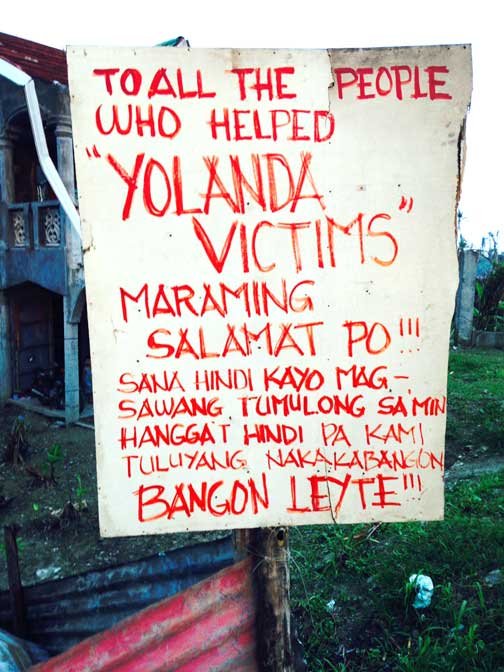 TO ALL THE PEOPLE
WHO HELPED
"YOLANDA
VICTIMS"
MARAMING
SALAMAT PO!!!
SANA HINDI KAYO MAG-
SAWANG TUMULONG SA'MIN
HANGGAT HINDI PA KAMI
TULUYANG NAKAKABANGON
BANGON LEYTE"!!